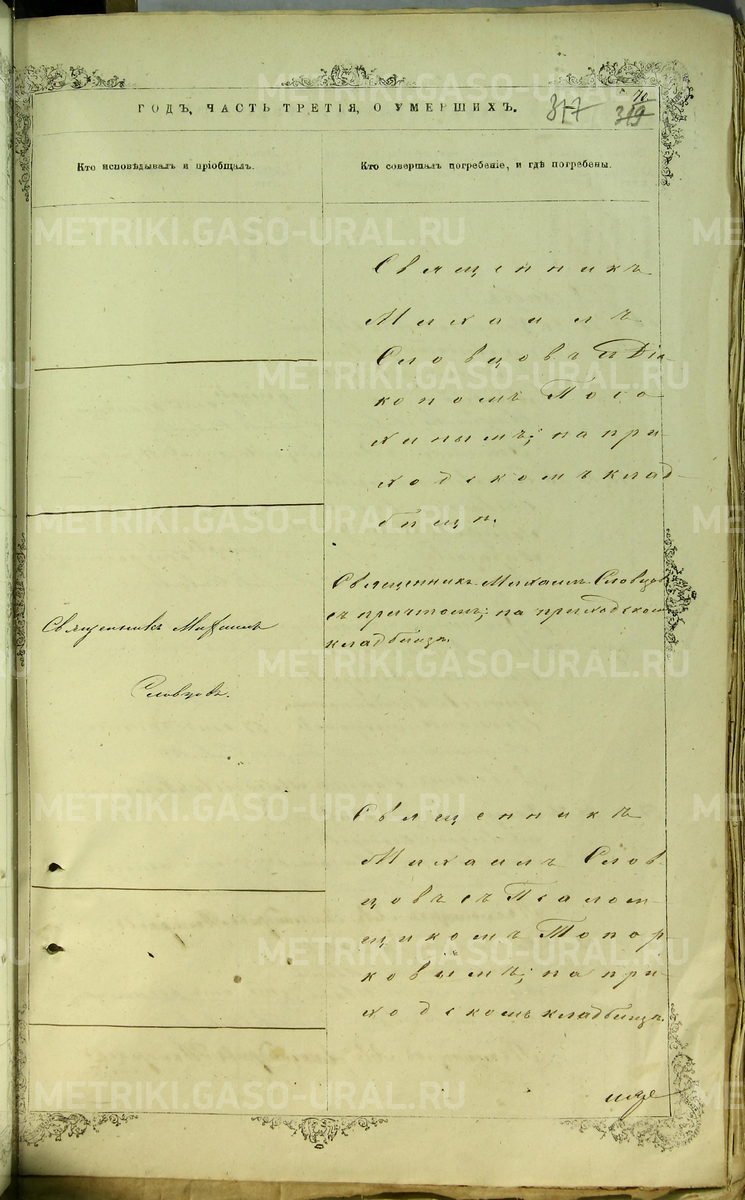 ГОДЪ, ЧАСТЬ ТРЕТІЯ, О УМЕРШИХЪ.
317
70
319
Кто исповѣдывалъ и пріобщалъ.
Кто совершалъ погребеніе, и гдѣ погребены.
Священникъ
Михаилъ
Словцовъ съ Діа-
кономъ
на при-
ходскомъ клад-
бищѣ.
Священникъ Михаилъ Словцов
съ причтомъ; на приходскомъ
кладбищѣ.
Священникъ Михаилъ
Словцовъ.
Священникъ
Михаилъ Слов-
цовъ съ Псалом-
щикомъ Топор-
ковымъ; на при-
ходскомъ кладбищѣ.
METRIKI.GASO-URAL.RU